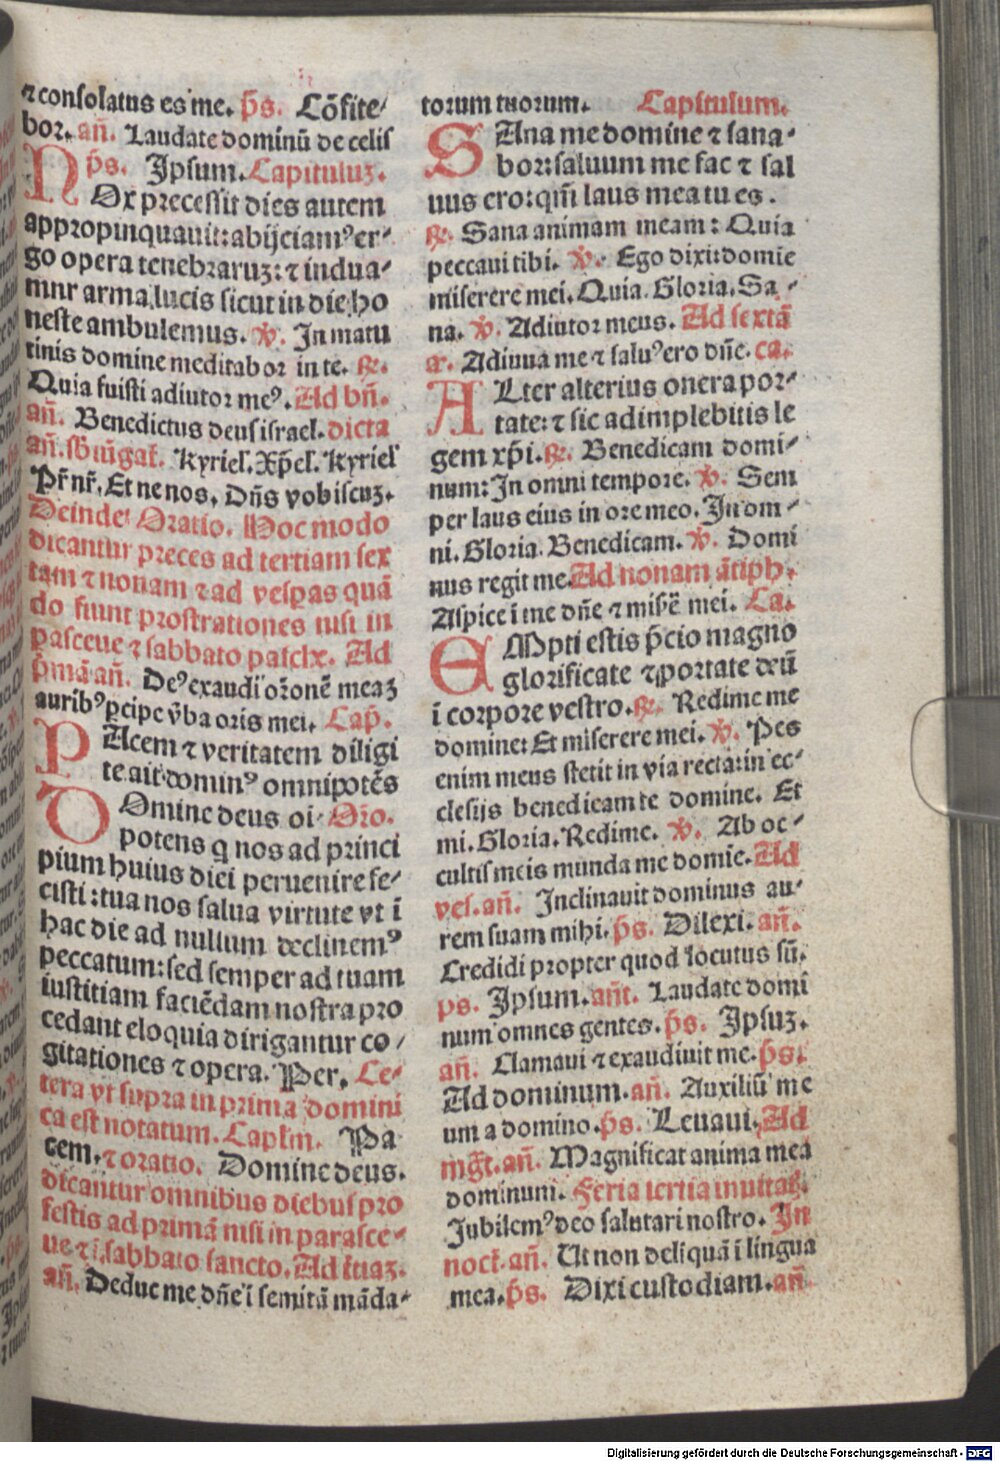 ⁊ consolatus es me. p̄s. Cōfite/
bor. an̄. Laudate dominū de celis
p̄s. Ipsum. Capituluʒ.
NOx precessit dies autem
appropinquauit: abijciamꝰ er/
go opera tenebraruʒ: ⁊ indua/
mur arma lucis sicut in die ho
neste ambulemus. ℣. In matu
tinis domine meditabor in te. ℟.
Quia fuisti adiutor meꝰ. Ad bn̄.
an̄. Benedictus deus israel. dicta
Kyriel. Xp̄el. Kyriel
Pr̄ nr̄. Et ne nos. Dn̄s vobiscuʒ.
Deinde Oratio. Hoc modo
dicantur preces ad tertiam sex
tam ⁊ nonam ⁊ ad vesꝑas quā
do fiunt prostrationes nisi in
pasceue ⁊ sabbato pasche. Ad
p̄mā an̄. Deꝰ exaudi or̄onē meaʒ
auribꝰ ꝑcipe v̄ba oris mei. Cap̄.
PAcem ⁊ veritatem diligi
te ait dominꝰ omnipotēs
Omine deus oī Or̄o.
potens q nos ad princi
pium huius diei peruenire fe/
cisti: tua nos salua virtute vt ī
hac die ad nullum declinemꝰ
peccatum: sed semper ad tuam
iustitiam faciēdam nostra pro
cedant eloquia dirigantur co/
gitationes ⁊ opera. Per. Ce/
tera vt supra in prima domini
ca est notatum. Capl̄m. Pa
cem. ⁊ oratio. Domine deus.
dicantur omnibus diebus pro
festis ad primā nisi in parasce/
ue ⁊ ī sabbato sancto. Ad t̄tiaʒ.
an̄. Deduc me dn̄e ī semitā māda/
torum tuorum. Capitulum.
SAna me domine ⁊ sana/
bor: saluum me fac ⁊ sal
uus ero: qm̄ laus mea tu es.
℟. Sana animam meam: Quia
peccaui tibi. ℣. Ego dixi: domīe
miserere mei. Quia. Gloria. Sa/
na. ℣. Adiutor meus. Ad sextā
a. Adiuua me ⁊ saluꝰ ero dn̄e. ca.
ALter alterius onera por/
tate: ⁊ sic adimplebitis le
gem xp̄i. ℟. Benedicam domi/
num: In omni tempore. ℣. Sem
per laus eius in ore meo. In om/
ni. Gloria. Benedicam. ℣. Domi
nus regit me. Ad nonam ātiph.
Aspice ī me dn̄e ⁊ mis̄e mei. Ca.
EMpti estis p̄cio magno
glorificate ⁊ portate deū
ī corpore vestro. ℟. Redime me
domine: Et miserere mei. ℣. Pes
enim meus stetit in via recta: in ec/
clesijs benedicam te domine. Et
mi. Gloria. Redime. ℣. Ab oc/
cultis meis munda me domīe. Ad
ves. an̄. Inclinauit dominus au/
rem suam mihi. p̄s. Dilexi. an̄.
Credidi propter quod locutus sū.
ps. Ipsum. an̄t. Laudate domi
num omnes gentes. p̄s. Ipsuʒ.
an̄. Clamaui ⁊ exaudiuit me. p̄s.
Ad dominum. an̄. Auxiliū me
um a domino. p̄s. Leuaui. Ad
mgt̄. an̄. Magnificat anima mea
dominum. Feria tertia inuitat̄.
Jubilemꝰ deo salutari nostro. In
noct̄. an̄. Ut non deliquā ī lingua
mea. p̄s. Dixi custodiam. an̄
Digitalisierung gefördert durch die Deutsche Forschungsgemeinschaft - DFG